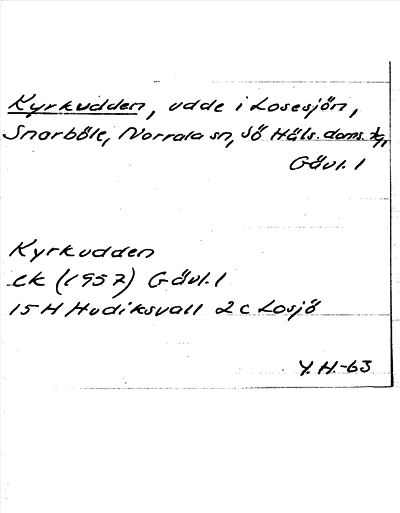 Kyrkudden, udde i Losesjön,
Snarböle, Norrala sn, Sö Häls. doms.
Gävl. l
Kyrkudden
ek (1957) Gävl. l
15 H Hudiksvall 2 c Losjö
Y. H.-63